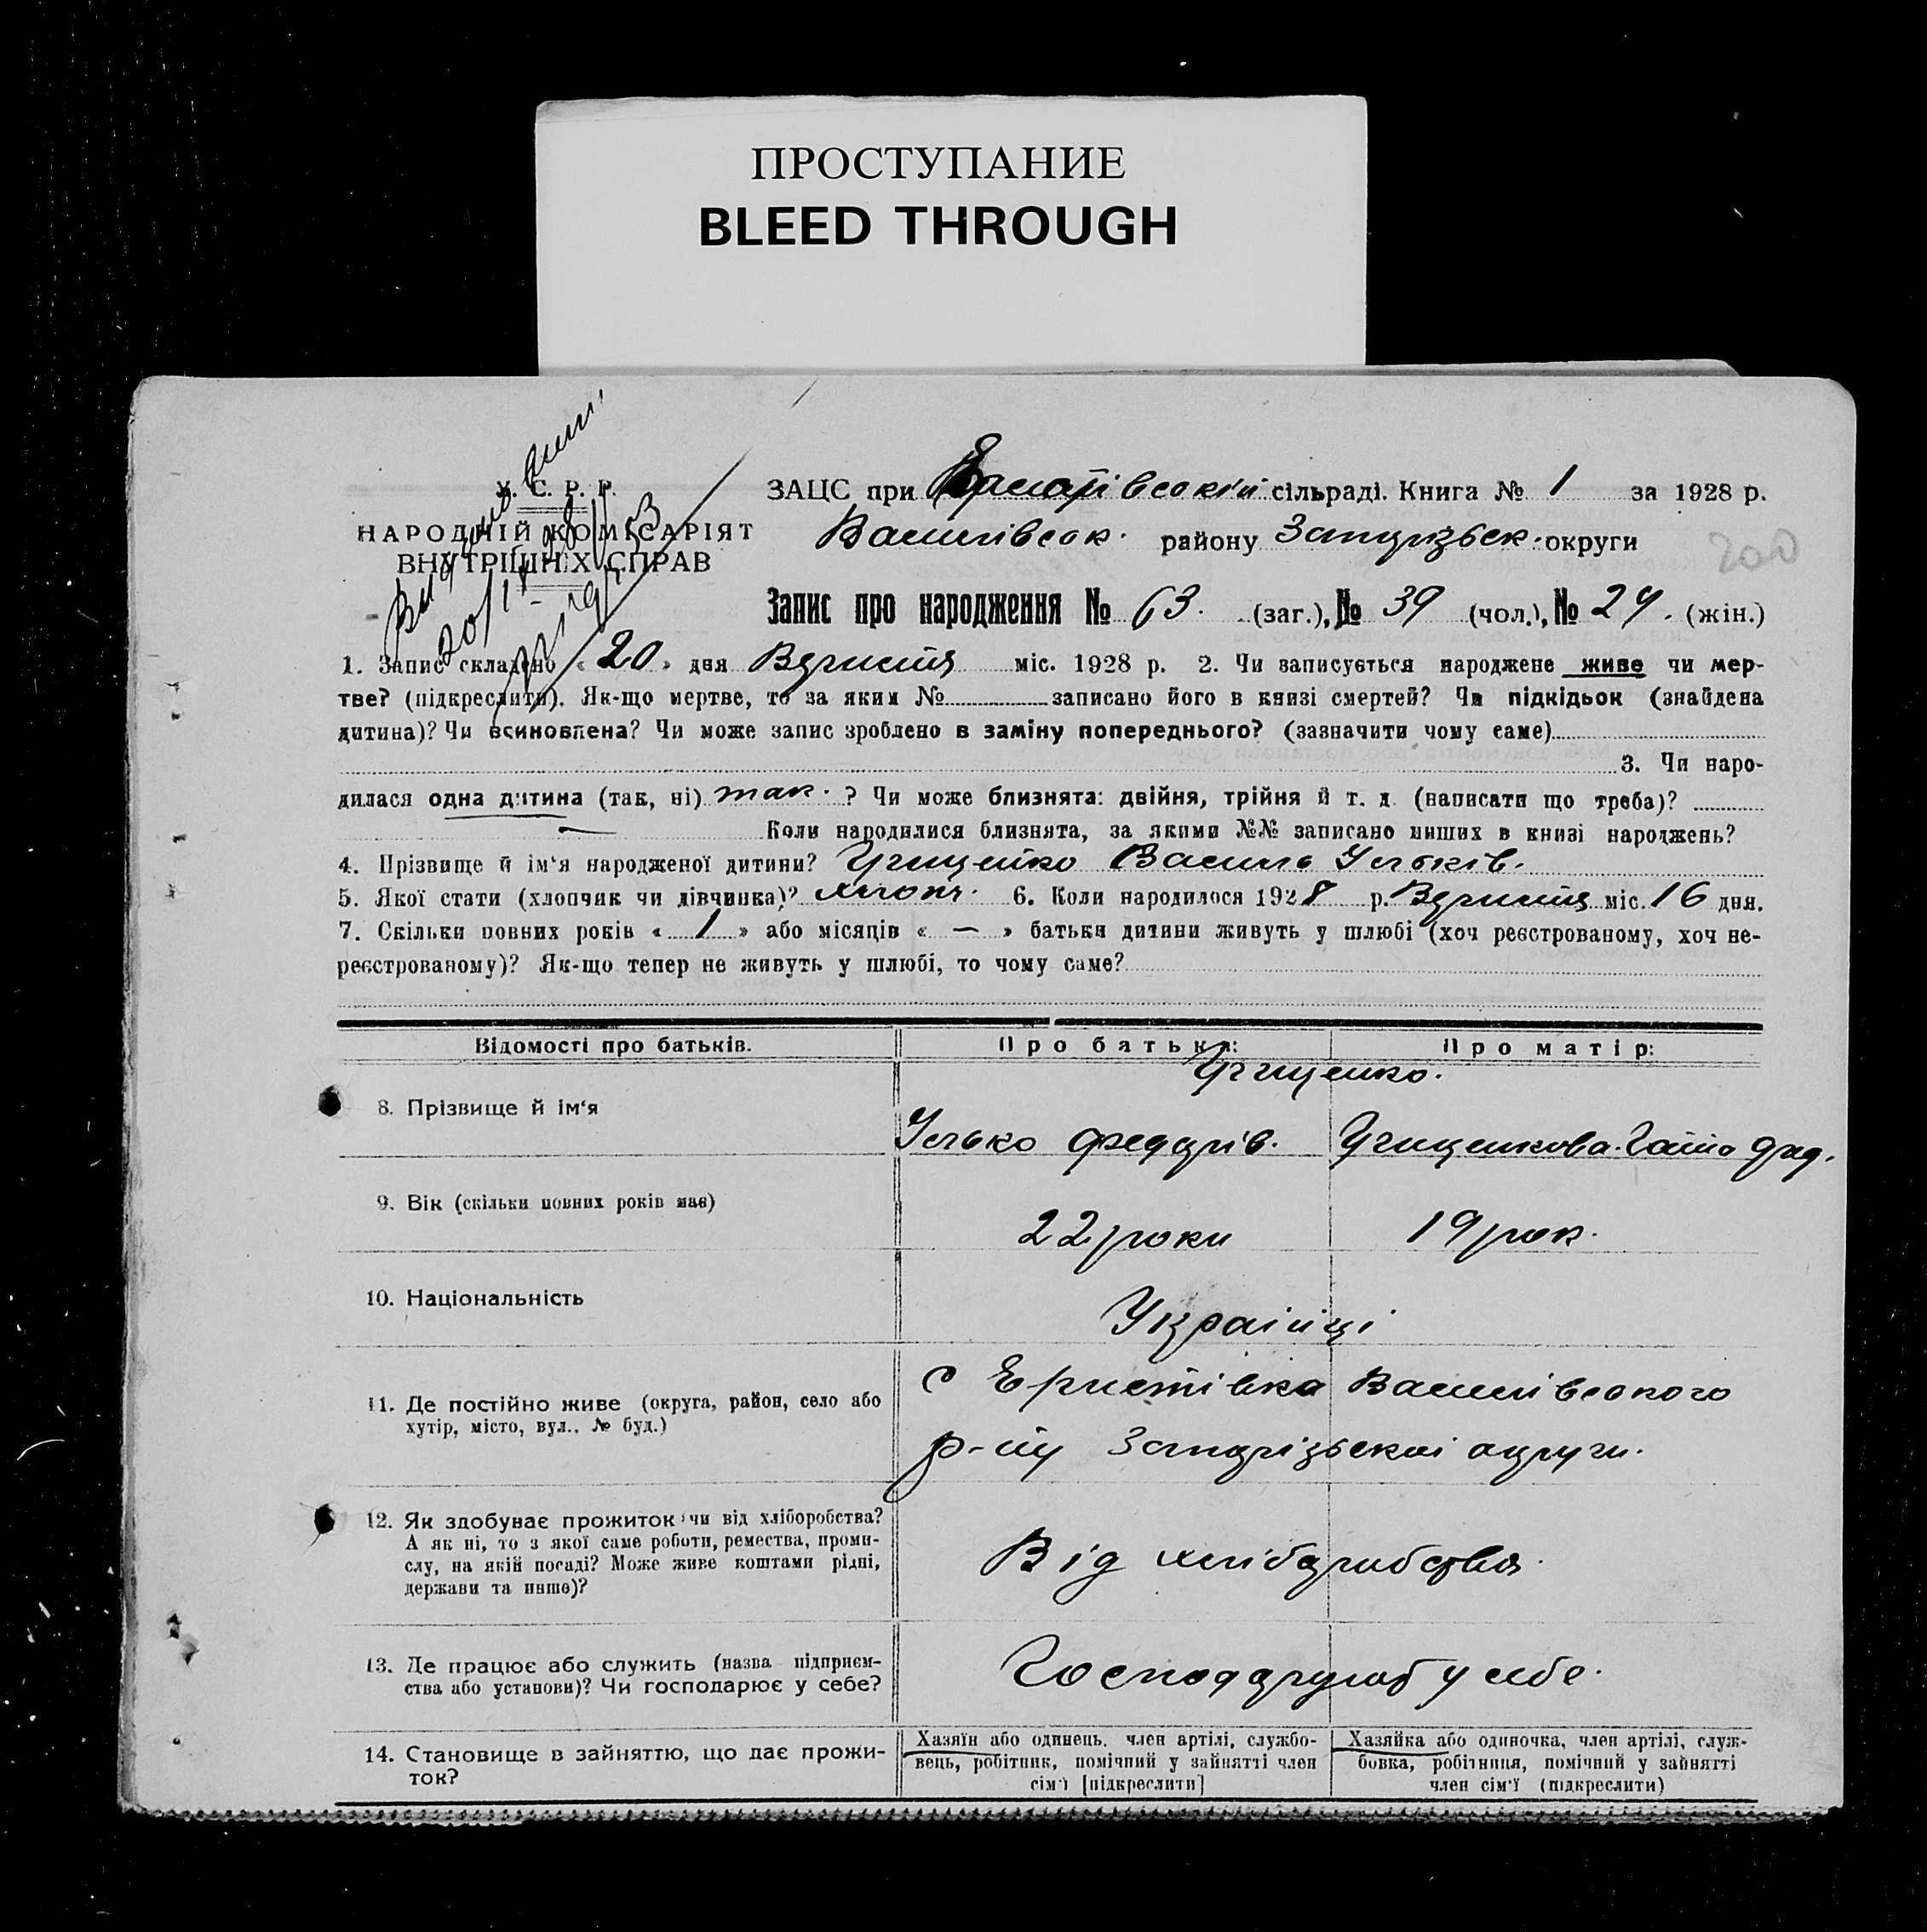 ПРОСТУПАНИЕ
BLEED THROUGH
У. С. Р. Р.
НАРОДНІЙ КОМІСАРІЯТ
ВНУТРІШНІХ СПРАВ
ЗАЦС при сільраді. Книга № 1 за 1928 р.
Василівськ. району Запорізьск. округи
200
Запис про народження № 63. (заг.), № 39 (чол.), № 24. (жін.)
1. Запис складено « 20 » дня Вересня міс. 1928 р. 2. Чи записується народжене живе чи мер-
тве? (підкреслити). Як-що мертве, то за яким № записано його в книзі смертей? Чи підкідьок (знайдена
дитина)? Чи всиновлена? Чи може запис зроблено в заміну попереднього? (зазначити чому саме)
3. Чи наро-
дилася одна дитина (так, ні) так. ? Чи може близнята: двійня, трійня й т. д. (написати що треба)?
Коли народилися близнята, за якими №№ записано инших в книзі народжень?
4. Прізвище й ім'я народженої дитини? Грищенко Василь Ульків.
5. Якої стати (хлопчик чи дівчинка)? хлопч. 6. Коли народилося 1928 р. Вересня міс. 16 дня.
7. Скільки повних років « 1 » або місяців « — » батьки дитини живуть у шлюбі (хоч реєстрованому, хоч не-
реєстрованому)? Як-що тепер не живуть у шлюбі, то чому саме?
Відомості про батьків. Про батька: Про матір:
Грищенко.
8. Прізвище й ім'я Улько Федорів. Грищенкова
9. Вік (скільки повних років має) 22 роки 19 рок.
10. Національність Українці
11. Де постійно живе (округа, район, село або
хутір, місто, вул., № буд.)
с Еристівка Василівського
р-ну Запорізьскої округи.
12. Як здобуває прожиток: чи від хліборобства?
А як ні, то з якої саме роботи, ремества, проми-
слу, на якій посаді? Може живе коштами рідні,
держави та инше)?
Від хліборобства.
13. Де працює або служить (назва підприєм-
ства або установи)? Чи господарює у себе?
Господарують у себе.
14. Становище в зайняттю, що дає прожи-
ток?
Хазяїн або одинець, член артілі, службо-
вець, робітник, помічний у зайнятті член
сім'ї [підкреслити]
Хазяйка або одиночка, член артілі, служ-
бовка, робітниця, помічний у зайнятті
член сім'ї (підкреслити)